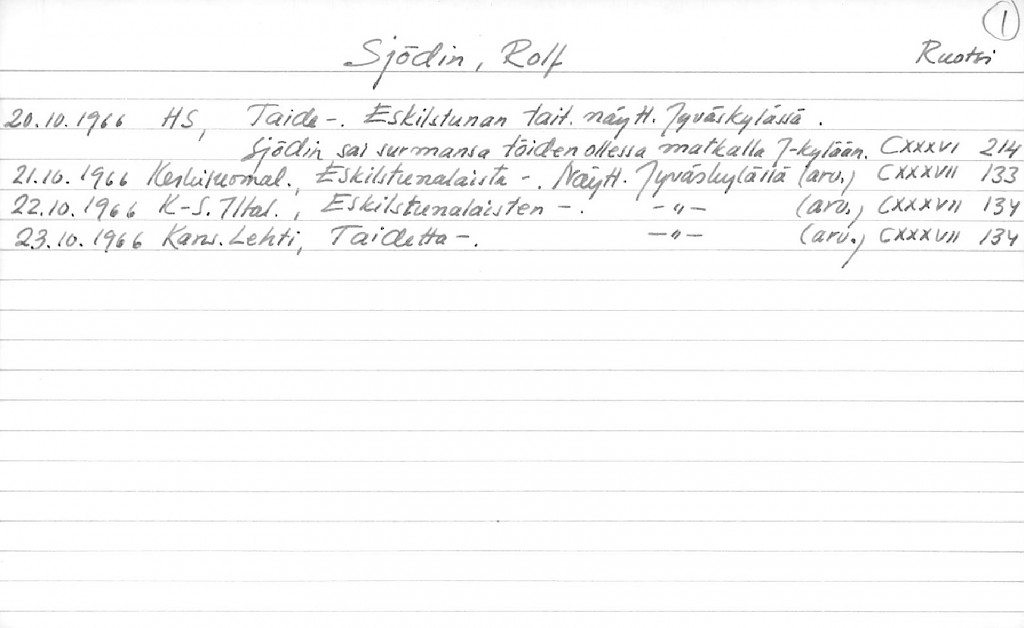 1
Sjödin, Rolf Ruotsi
20.10.1966 HS, Taide-. Eskilstunan tait. näytt. Jyväskylässä.
Sjödin sai surmansa töiden ollessa matkalla J-kylään. CXXXVI 214
21.10.1966 Keskisuomal., Eskilstunalaista -. Näytt. Jyväskylässä (arv.) CXXXVII 133
22.10.1966 K-S. Iltal., Eskilstunalaisten -. -"- (arv.) CXXXVII 134
23.10.1966 Kans. Lehti, Taidetta -. -"- (arv.) CXXXVII 134